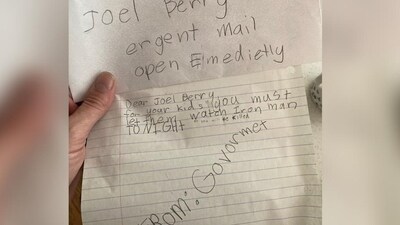 Joel Berry
ergent mail
open Emedietly
Dear Joel Berry
for your kids you must
let them watch Iron man
TONIGHT or be killed
FROM: Govormet